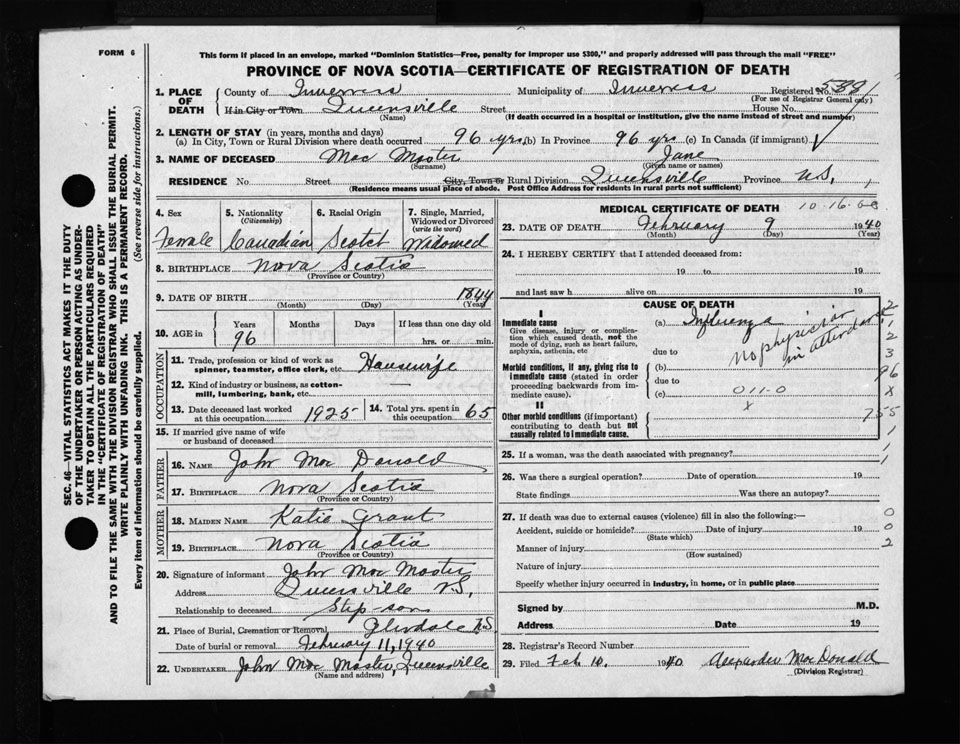 FORM 6
This form if placed in an envelope, marked "Dominion Statistics—Free, penalty for improper use $300," and properly addressed will pass through the mail "FREE"
PROVINCE OF NOVA SCOTIA—CERTIFICATE OF REGISTRATION OF DEATH
SEC. 46—VITAL STATISTICS ACT MAKES IT THE DUTY
OF THE UNDERTAKER OR PERSON ACTING AS UNDER-
TAKER TO OBTAIN ALL THE PARTICULARS REQUIRED
IN THE "CERTIFICATE OF REGISTRATION OF DEATH"
AND TO FILE THE SAME WITH THE DIVISION REGISTRAR WHO SHALL ISSUE THE BURIAL PERMIT.
WRITE PLAINLY WITH UNFADING INK. THIS IS A PERMANENT RECORD.
Every item of information should be carefully supplied. (See reverse side for instructions.)
1. PLACE OF DEATH County of Inverness Municipality of Inverness Registered No. 588
(For use of Registrar General only)
If in City or Town Queensville Street House No.
(Name) (If death occurred in a hospital or institution, give the name instead of street and number)
2. LENGTH OF STAY (in years, months and days)
(a) In City, Town or Rural Division where death occurred 96 yrs (b) In Province 96 yrs (c) In Canada (if immigrant)
3. NAME OF DECEASED Mac Master Jane
(Surname) (Given name or names)
RESIDENCE No Street City, Town or Rural Division Queensville Province N.S.
(Residence means usual place of abode. Post Office Address for residents in rural parts not sufficient)
4. Sex Female
5. Nationality (Citizenship) Canadian
6. Racial Origin Scotch
7. Single, Married, Widowed or Divorced (write the word) Widowed
8. BIRTHPLACE Nova Scotia
(Province or Country)
9. DATE OF BIRTH 1844
(Month) (Day) (Year)
10. AGE in Years Months Days If less than one day old
96 hrs. or min.
OCCUPATION
11. Trade, profession or kind of work as spinner, teamster, office clerk, etc. Housewife
12. Kind of industry or business, as cotton-mill, lumbering, bank, etc. —
13. Date deceased last worked at this occupation 1925
14. Total yrs. spent in this occupation 65
15. If married give name of wife or husband of deceased
FATHER
16. NAME John Mac Donald
17. BIRTHPLACE Nova Scotia
(Province or Country)
MOTHER
18. MAIDEN NAME Katie Grant
19. BIRTHPLACE Nova Scotia
(Province or Country)
20. Signature of informant John Mac Master
Address Queensville N.S,
Relationship to deceased Step-son
21. Place of Burial, Cremation or Removal Glendale N.S
Date of burial or removal February 11, 1940
22. UNDERTAKER John Mac Master, Queensville
(Name and address)
MEDICAL CERTIFICATE OF DEATH
23. DATE OF DEATH February 9 1940
(Month) (Day) (Year)
24. I HEREBY CERTIFY that I attended deceased from:
19 to 19
and last saw h alive on 19
CAUSE OF DEATH
I
Immediate cause
Give disease, injury or complication which caused death, not the mode of dying, such as heart failure, asphyxia, asthenia, etc
(a) Influenza
due to
No physician in attendance
Morbid conditions, if any, giving rise to immediate cause (stated in order proceeding backwards from immediate cause).
(b)
due to
(c) 011-0
x
II
Other morbid conditions (if important) contributing to death but not causally related to immediate cause.
2
1
2
3
96
x
755
1
1
1
25. If a woman, was the death associated with pregnancy?
26. Was there a surgical operation? Date of operation 19
State findings Was there an autopsy?
27. If death was due to external causes (violence) fill in also the following:—
Accident, suicide or homicide? Date of injury 19
(State which)
Manner of injury
(How sustained)
Nature of injury
Specify whether injury occurred in industry, in home, or in public place
0
0
2
Signed by M.D.
Address Date 19
28. Registrar's Record Number
29. Filed Feb 10. 1940 Alexander Mac Donald
(Division Registrar)